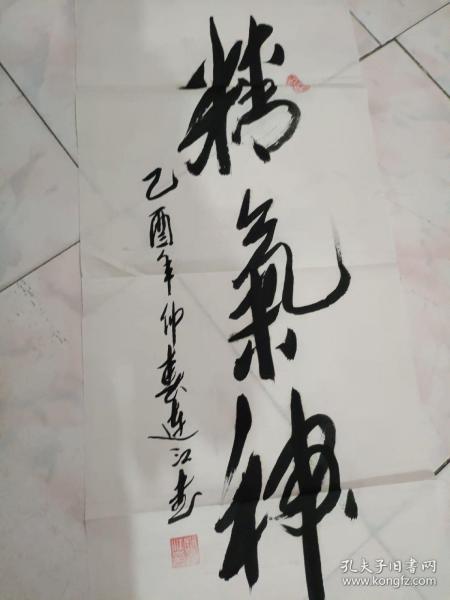 精氣神
乙酉年仲春连江书
孔夫子旧书网
www.kongfz.com